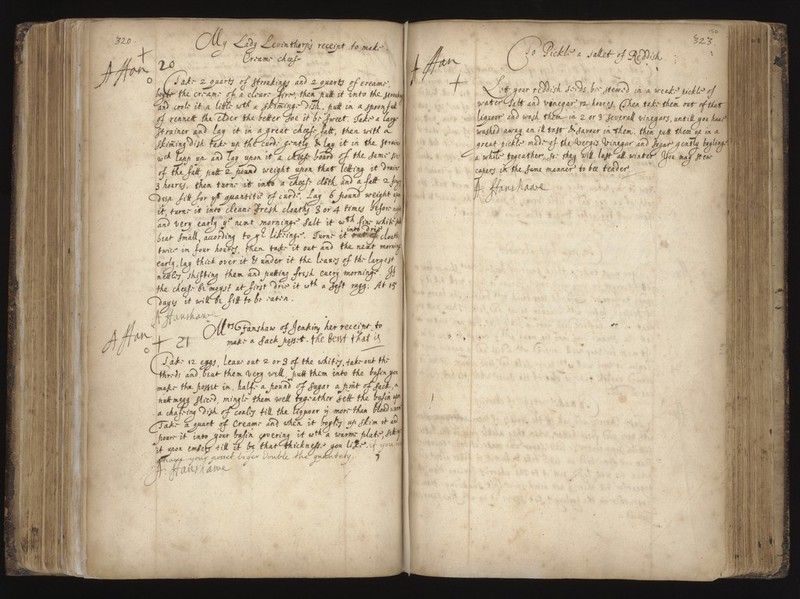 320
My Lady Leventhorps receint to make
Creame cheese
A ffan 20
Take 2 quarts of stroakings and 2 quarts of creame,
boyle the creame of a cleare fire, then putt it into the
and coole it a little wth a skiming dish, putt in a spoonfull
of rennett the elder the better soe it be sweet. Take a large
strainer and lay it in a great cheese fatt, then with a
skiming dish take up the curd gently & lay it in the strainer
wch lapp up and lay upon it a cheese board of the same size
of the fatt putt 2 pound weight upon that letting it draine
3 houres, then turne it into a cheese cloth and a fatt 2 fingers
deep fitt for yt quantitie of curd. Lay 6 pound weight
it, turne it into cleane fresh cloaths 3 or 4 times before
and very early ye next morning salt it wth fine white
beat small, according to yr likeing. Turne it into drie cloaths
twice in four houres, then take it out and the next morning
early, lay thick over it & under it the leaves of the largest
nettles shifting them and putting fresh every morning. If
the cheese be moyst at first drie it wth a soft ragg: At 15
dayes it will be fitt to be eaten.
A ffanshawe
A ffan 21 Mrs ffanshaw of Jenkins her receipt to
make a Sack possett. the best that is
Take 12 eggs, leave out 2 or 3 of the whites, take out the
threds and beat them very well, putt them into the bason you
make the possett in, halfe a pound of sugar a pint of sack, a
nuttmegg sliced, mingle them well together sett the bason upon
a chafeing dish of coales till the liquoor is more than blood warm
Take a quart of Creame and when it boyles up skim it and
power it into your bason covering it wth a warme plate, sett
it upon embers till it be that thicknesse you like. if you
have your possett biger double the quantity.
A ffanshawe
323
A ffan
To Pickle a sallet of Reddish
Lett your reddish seeds be stewed in a weake pickle of
water salt and vinegar 12 houres, then take them out of that
liquoor and wash them in 2 or 3 severall vinegars, untill you have
washed away an ill tast & savour in them. then sett them up in a
great pickle made of the Vergis vinagar and Sugar gently boyling
a while together, so they will last all winter. You may stew
capers in the same manner to bee tender.
A ffanshawe